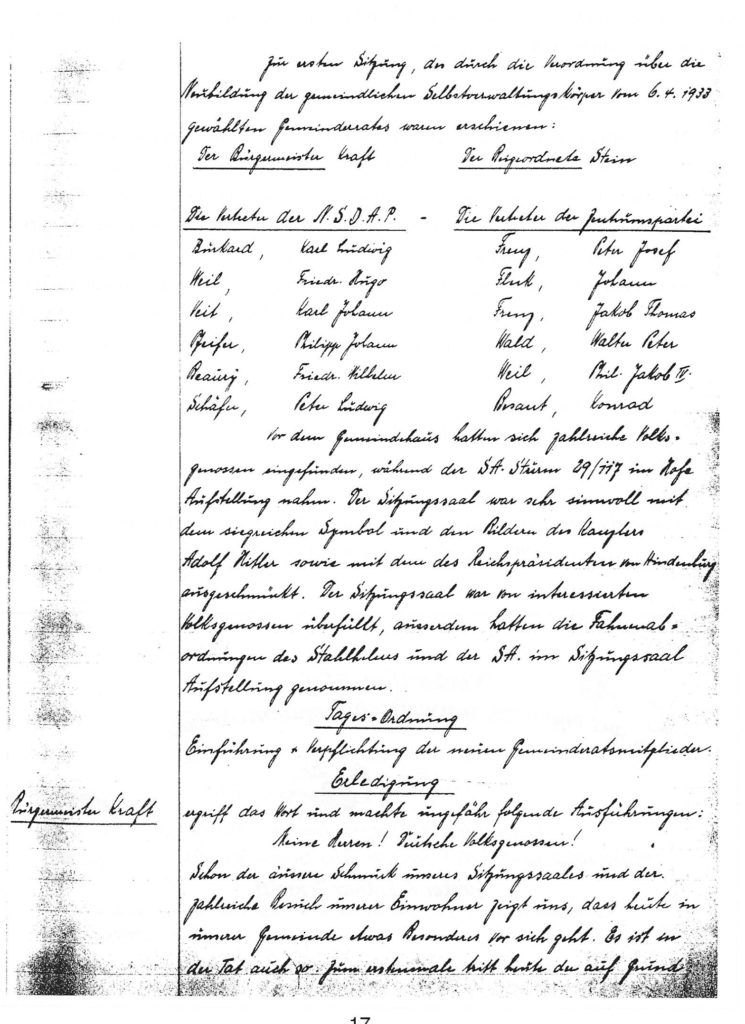 Zur ersten Sitzung, des durch die Verordnung über die
Neubildung der gemeindlichen Selbstverwaltungskörper vom 6.4.1933
gewählten Gemeinderates waren erschienen:
Der Bürgermeister Kraft Der Beigeordnete Stein
Die Vertreter der N.S.D.A.P. - Die Vertreter der Zentrumspartei
Burkard, Karl Ludwig Freuz, Peter Josef
Weil, Friedr. Hugo Fluk, Johann
Veit, Karl Johann Freuz, Jakob Thomas
Pfeifer, Philipp Johann Wald, Walter Peter
Beaury, Friedr. Wilhelm Weil, Phil. Jakob IV.
Schäfer, Peter Ludwig Besant, Konrad
Vor dem Gemeindehaus hatten sich zahlreiche Volks=
genossen eingefunden, während der SA. Sturm 29/117 im Hofe
Aufstellung nahm. Der Sitzungssaal war sehr sinnvoll mit
dem siegreichen Symbol und den Bildern des Kanzlers
Adolf Hitler sowie mit dem des Reichspräsidenten von Hindenburg
ausgeschmückt. Der Sitzungssaal war von interessierten
Volksgenossen überfüllt, ausserdem hatten die Fahnenab=
ordnungen des Stahlhelms und der SA. im Sitzungssaal
Aufstellung genommen.
Tages=Ordnung
Einführung + Verpflichtung der neuen Gemeinderatsmitglieder.
Erledigung
Bürgermeister Kraft ergriff das Wort und machte ungefähr folgende Ausführungen:
Meine Herren! Deutsche Volksgenossen!
Schon der äusere Schmuck unseres Sitzungssaales und der
zahlreiche Besuch unserer Einwohner zeigt uns, dass heute in
unserer Gemeinde etwas Besonderes vor sich geht. Es ist in
der Tat auch so. Zum erstenmale tritt heute der auf Grund
17